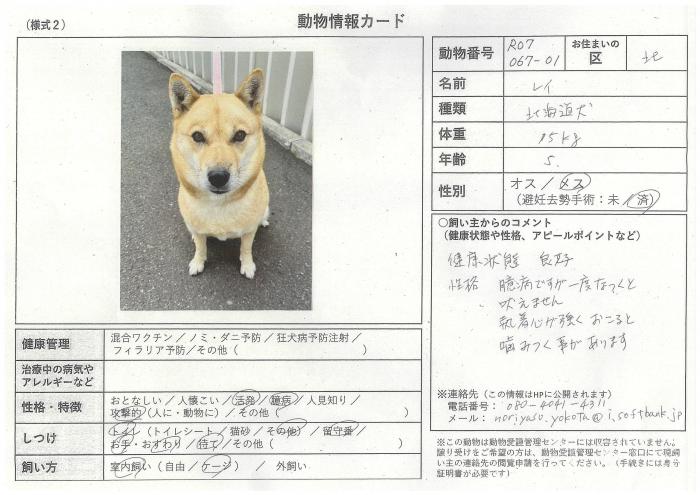 （様式２）
動物情報カード
動物番号 R07 067-01 お住まいの区 北
名前 レイ
種類 北海道犬
体重 15kg
年齢 5.
性別 オス / メス
（避妊去勢手術：未 / 済）
○飼い主からのコメント
（健康状態や性格、アピールポイントなど）
健康状態 良好
性格 臆病ですが一度なつくと
吠えません
執着心が強く おこると
噛みつく事があります
※連絡先（この情報はHPに公開されます）
電話番号： 080-4041-4311
メール： noriyasu.yokota@i.softbank.jp
※この動物は動物愛護管理センターには収容されていません。
譲り受けをご希望の方は、動物愛護管理センター窓口にて現飼
い主の連絡先の閲覧申請を行ってください。（手続きには身分
証明書が必要です）
健康管理 混合ワクチン / ノミ・ダニ予防 / 狂犬病予防注射 /
フィラリア予防 / その他（ ）
治療中の病気や
アレルギーなど
性格・特徴 おとなしい / 人懐こい / 活発 / 臆病 / 人見知り /
攻撃的（人に・動物に） / その他（ ）
しつけ トイレ（トイレシート / 猫砂 / その他） / 留守番 /
お手・おすわり / 待て / その他（ ）
飼い方 室内飼い（自由 / ケージ） / 外飼い